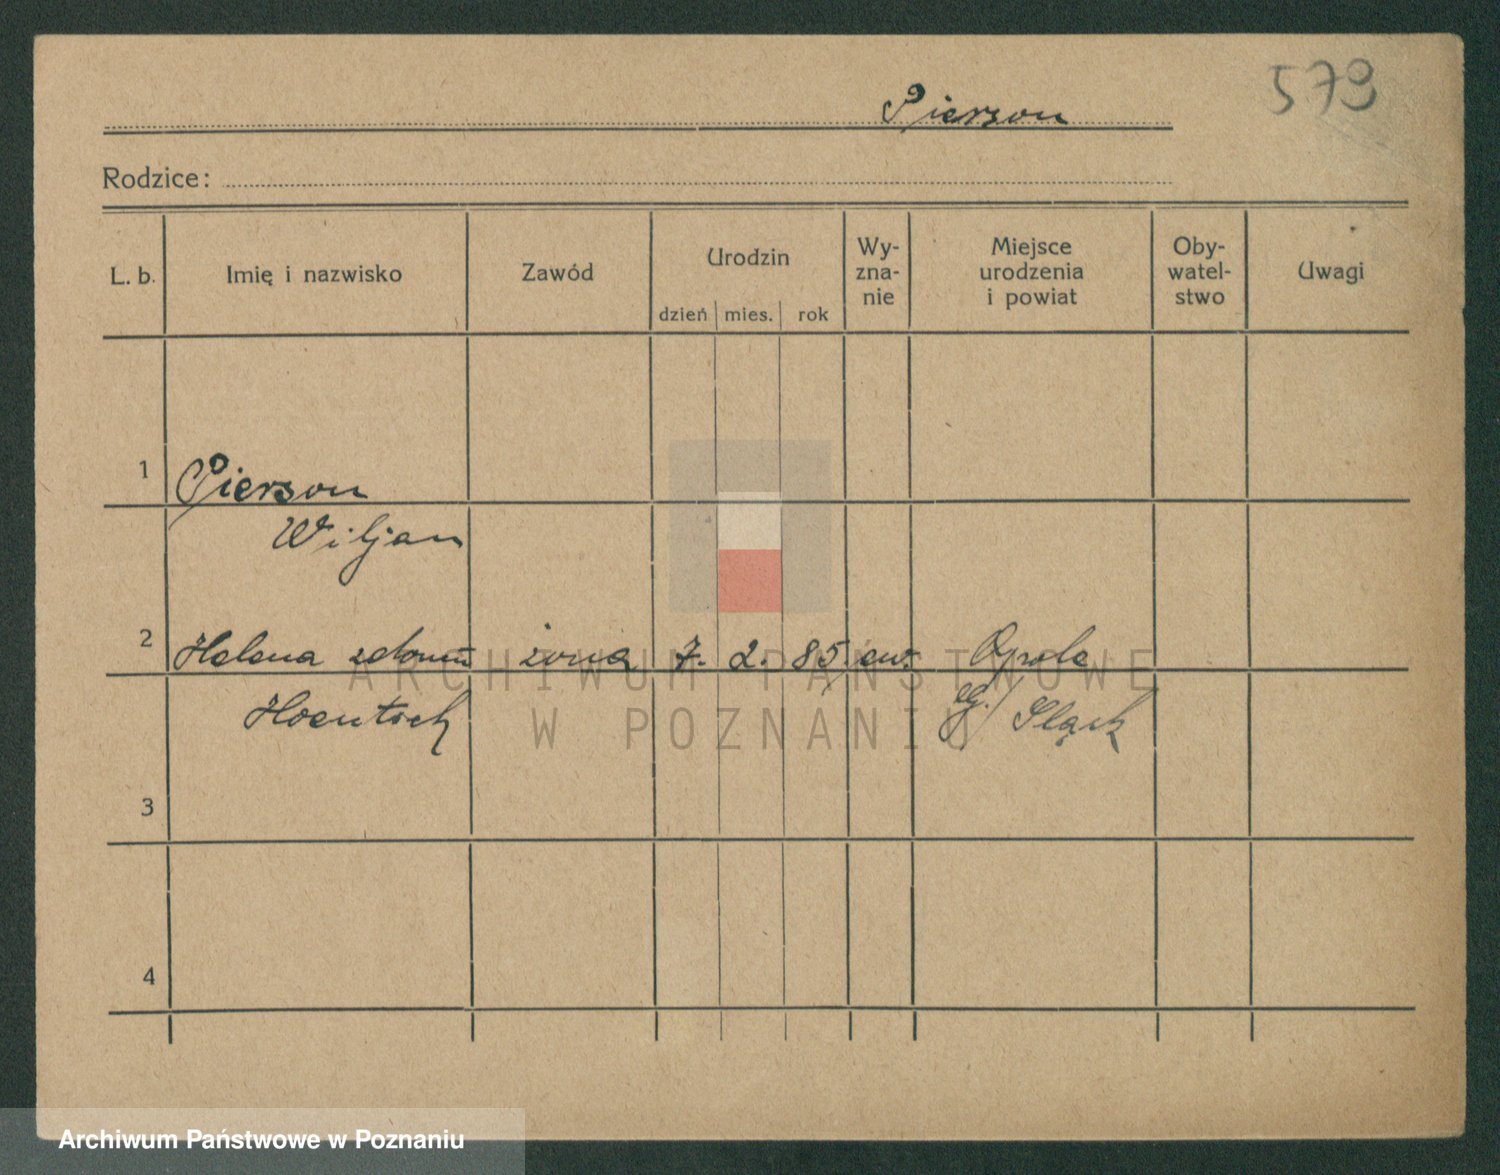 579
Pierson
Rodzice:
L. b. Imię i nazwisko Zawód Urodzin dzień mies. rok Wy-zna-nie Miejsce urodzenia i powiat Oby-watel-stwo Uwagi
1 Pierson
Wiljan
2 Helena z domu żona 7. 2. 85. ew. Opole
G./Śląsk
3
4
ARCHIWUM PAŃSTWOWE
W POZNANIU
Archiwum Państwowe w Poznaniu